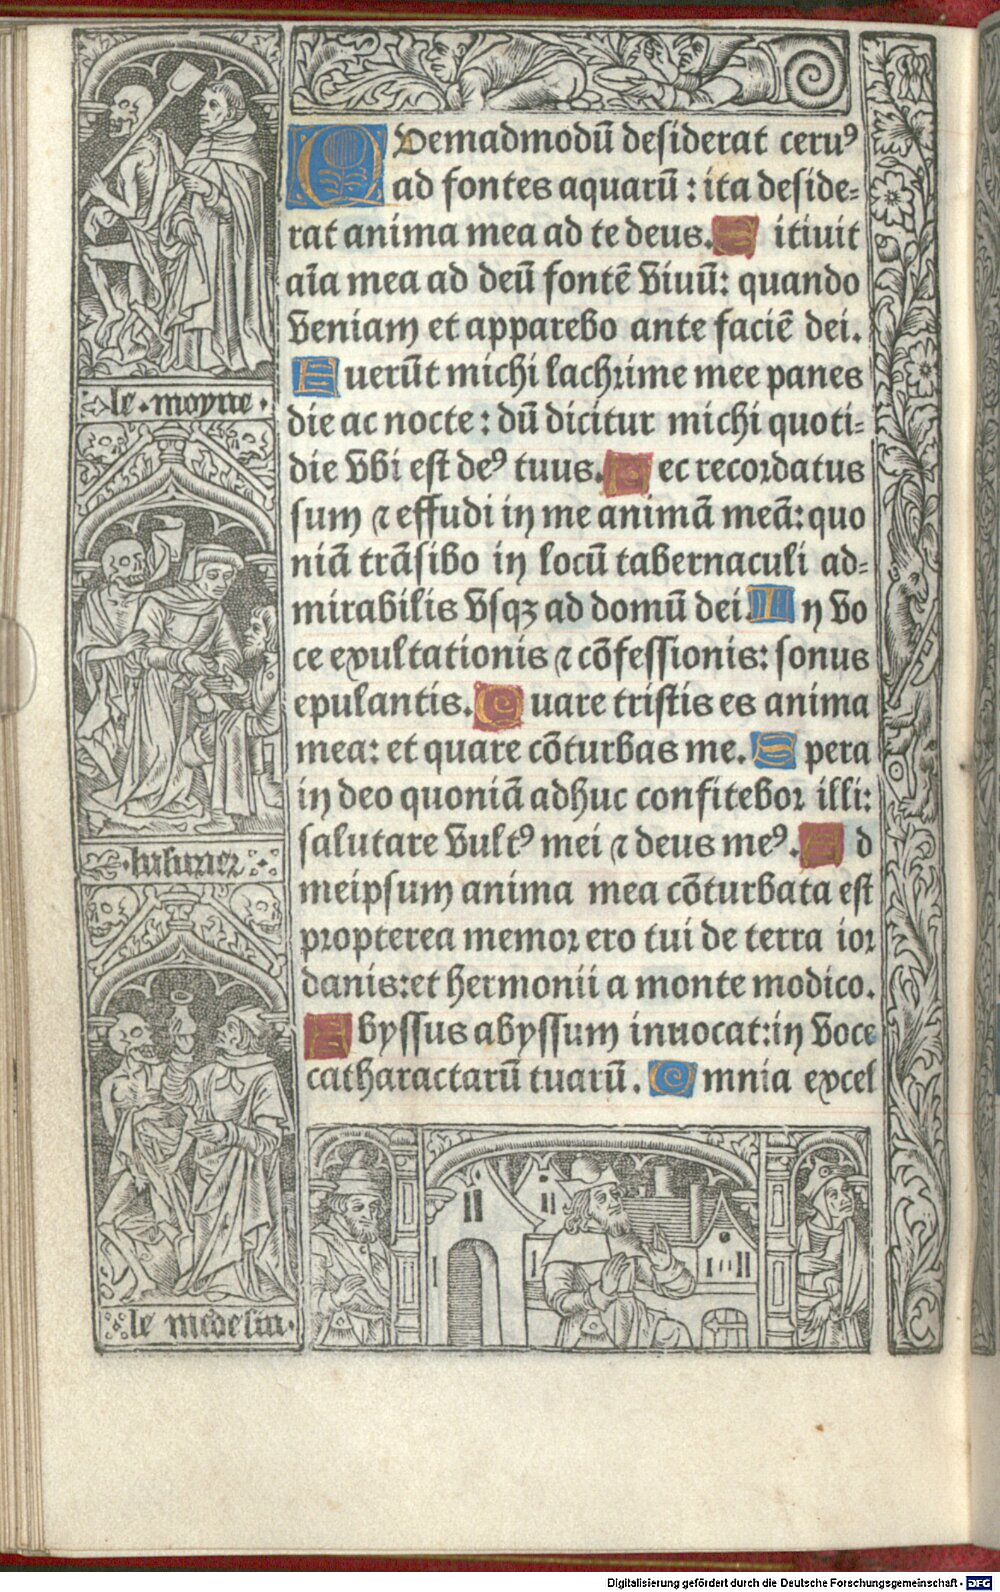 QVemadmodū desiderat ceruꝰ
ad fontes aquarū : ita deside⸗
rat anima mea ad te deus. Sitiuit
aīa mea ad deū fontē viuū: quando
veniam et apparebo ante faciē dei.
Fuerūt michi lachrime mee panes
die ac nocte : dū dicitur michi quoti⸗
die vbi est deꝰ tuus. Hec recordatus
sum ⁊ effudi in me animā meā: quo
niā trāsibo in locū tabernaculi ad⸗
mirabilis vsqꝫ ad domū dei. In vo
ce exultationis ⁊ cōfessionis: sonus
epulantis. Quare tristis es anima
mea: et quare cōturbas me. Spera
in deo quoniā adhuc confitebor illi:
salutare vultꝰ mei ⁊ deus meꝰ. Ad
meipsum anima mea cōturbata est
propterea memor ero tui de terra ior
danis: et hermonii a monte modico.
Abyssus abyssum inuocat: in voce
catharactarū tuarū. Omnia excel
le moyne
lusurier
le medesin
Digitalisierung gefördert durch die Deutsche Forschungsgemeinschaft - DFG